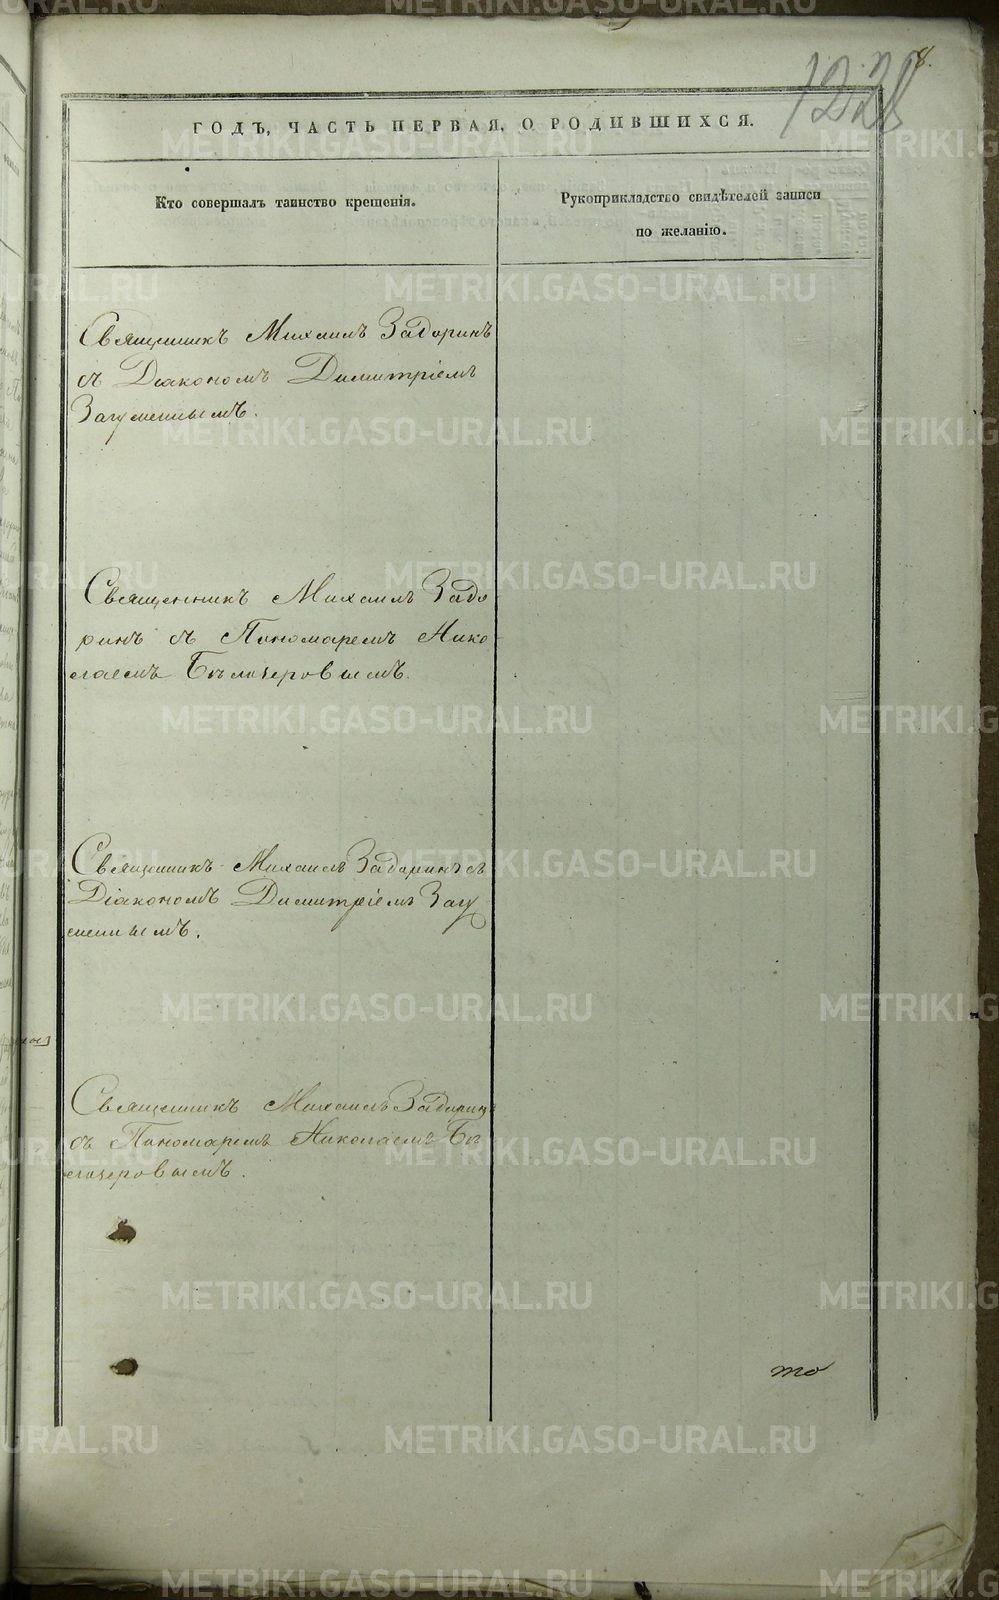 8.
ГОДЪ, ЧАСТЬ ПЕРВАЯ, О РОДИВШИХСЯ.
Кто совершалъ таинство крещенія.
Рукоприкладство свидѣтелей записи
по желанію.
Священникъ Михаилъ Задоринъ
съ Діакономъ Димитріемъ
Загуменнымъ.
Священникъ Михаилъ Задо
ринъ съ Пономаремъ Нико
лаемъ Бѣлозеровымъ.
Священникъ Михаилъ Задоринъ съ
Діакономъ Димитріемъ Загу
меннымъ.
Священникъ Михаилъ Задоринъ
съ Пономаремъ Николаемъ Бѣ
лозеровымъ.
то
METRIKI.GASO-URAL.RU